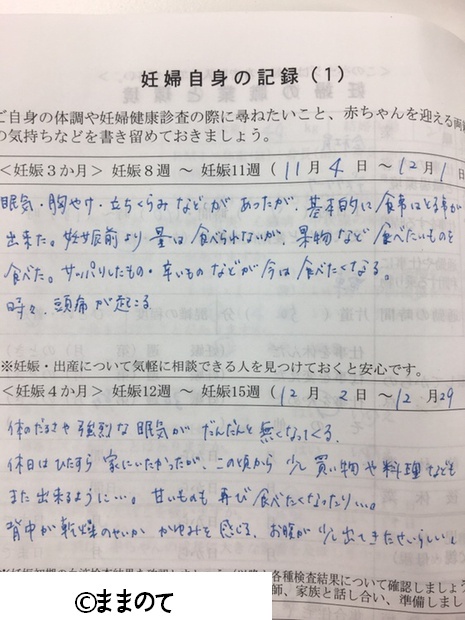 妊婦自身の記録(1)
ご自身の体調や妊婦健康診査の際に尋ねたいこと、赤ちゃんを迎える両親
の気持ちなどを書き留めておきましょう。
<妊娠3か月> 妊娠8週 ~ 妊娠11週 (11月4日~12月1日
眠気・胸やけ・立ちくらみなどがあったが、基本的に食事はとる事が
出来た。妊娠前より量は食べられないが、果物など食べたいものを
食べた。サッパリしたもの・辛いものなどが今は食べたくなる。
時々、頭痛が起こる
※妊娠・出産について気軽に相談できる人を見つけておくと安心です。
<妊娠4か月> 妊娠12週 ~ 妊娠15週 (12月2日~12月29
体のだるさや強烈な眠気がだんだんと無くなってくる。
休日はひたすら家にいたかったが、この頃から少し買い物や料理なども
また出来るように…。甘いものも再び食べたくなったり…。
背中が乾燥のせいかかゆみを感じる、お腹が少し出てきたせいらしい
各種検査結果について確認しましょう
師、家族と話し合い、準備しまし
©ままのて